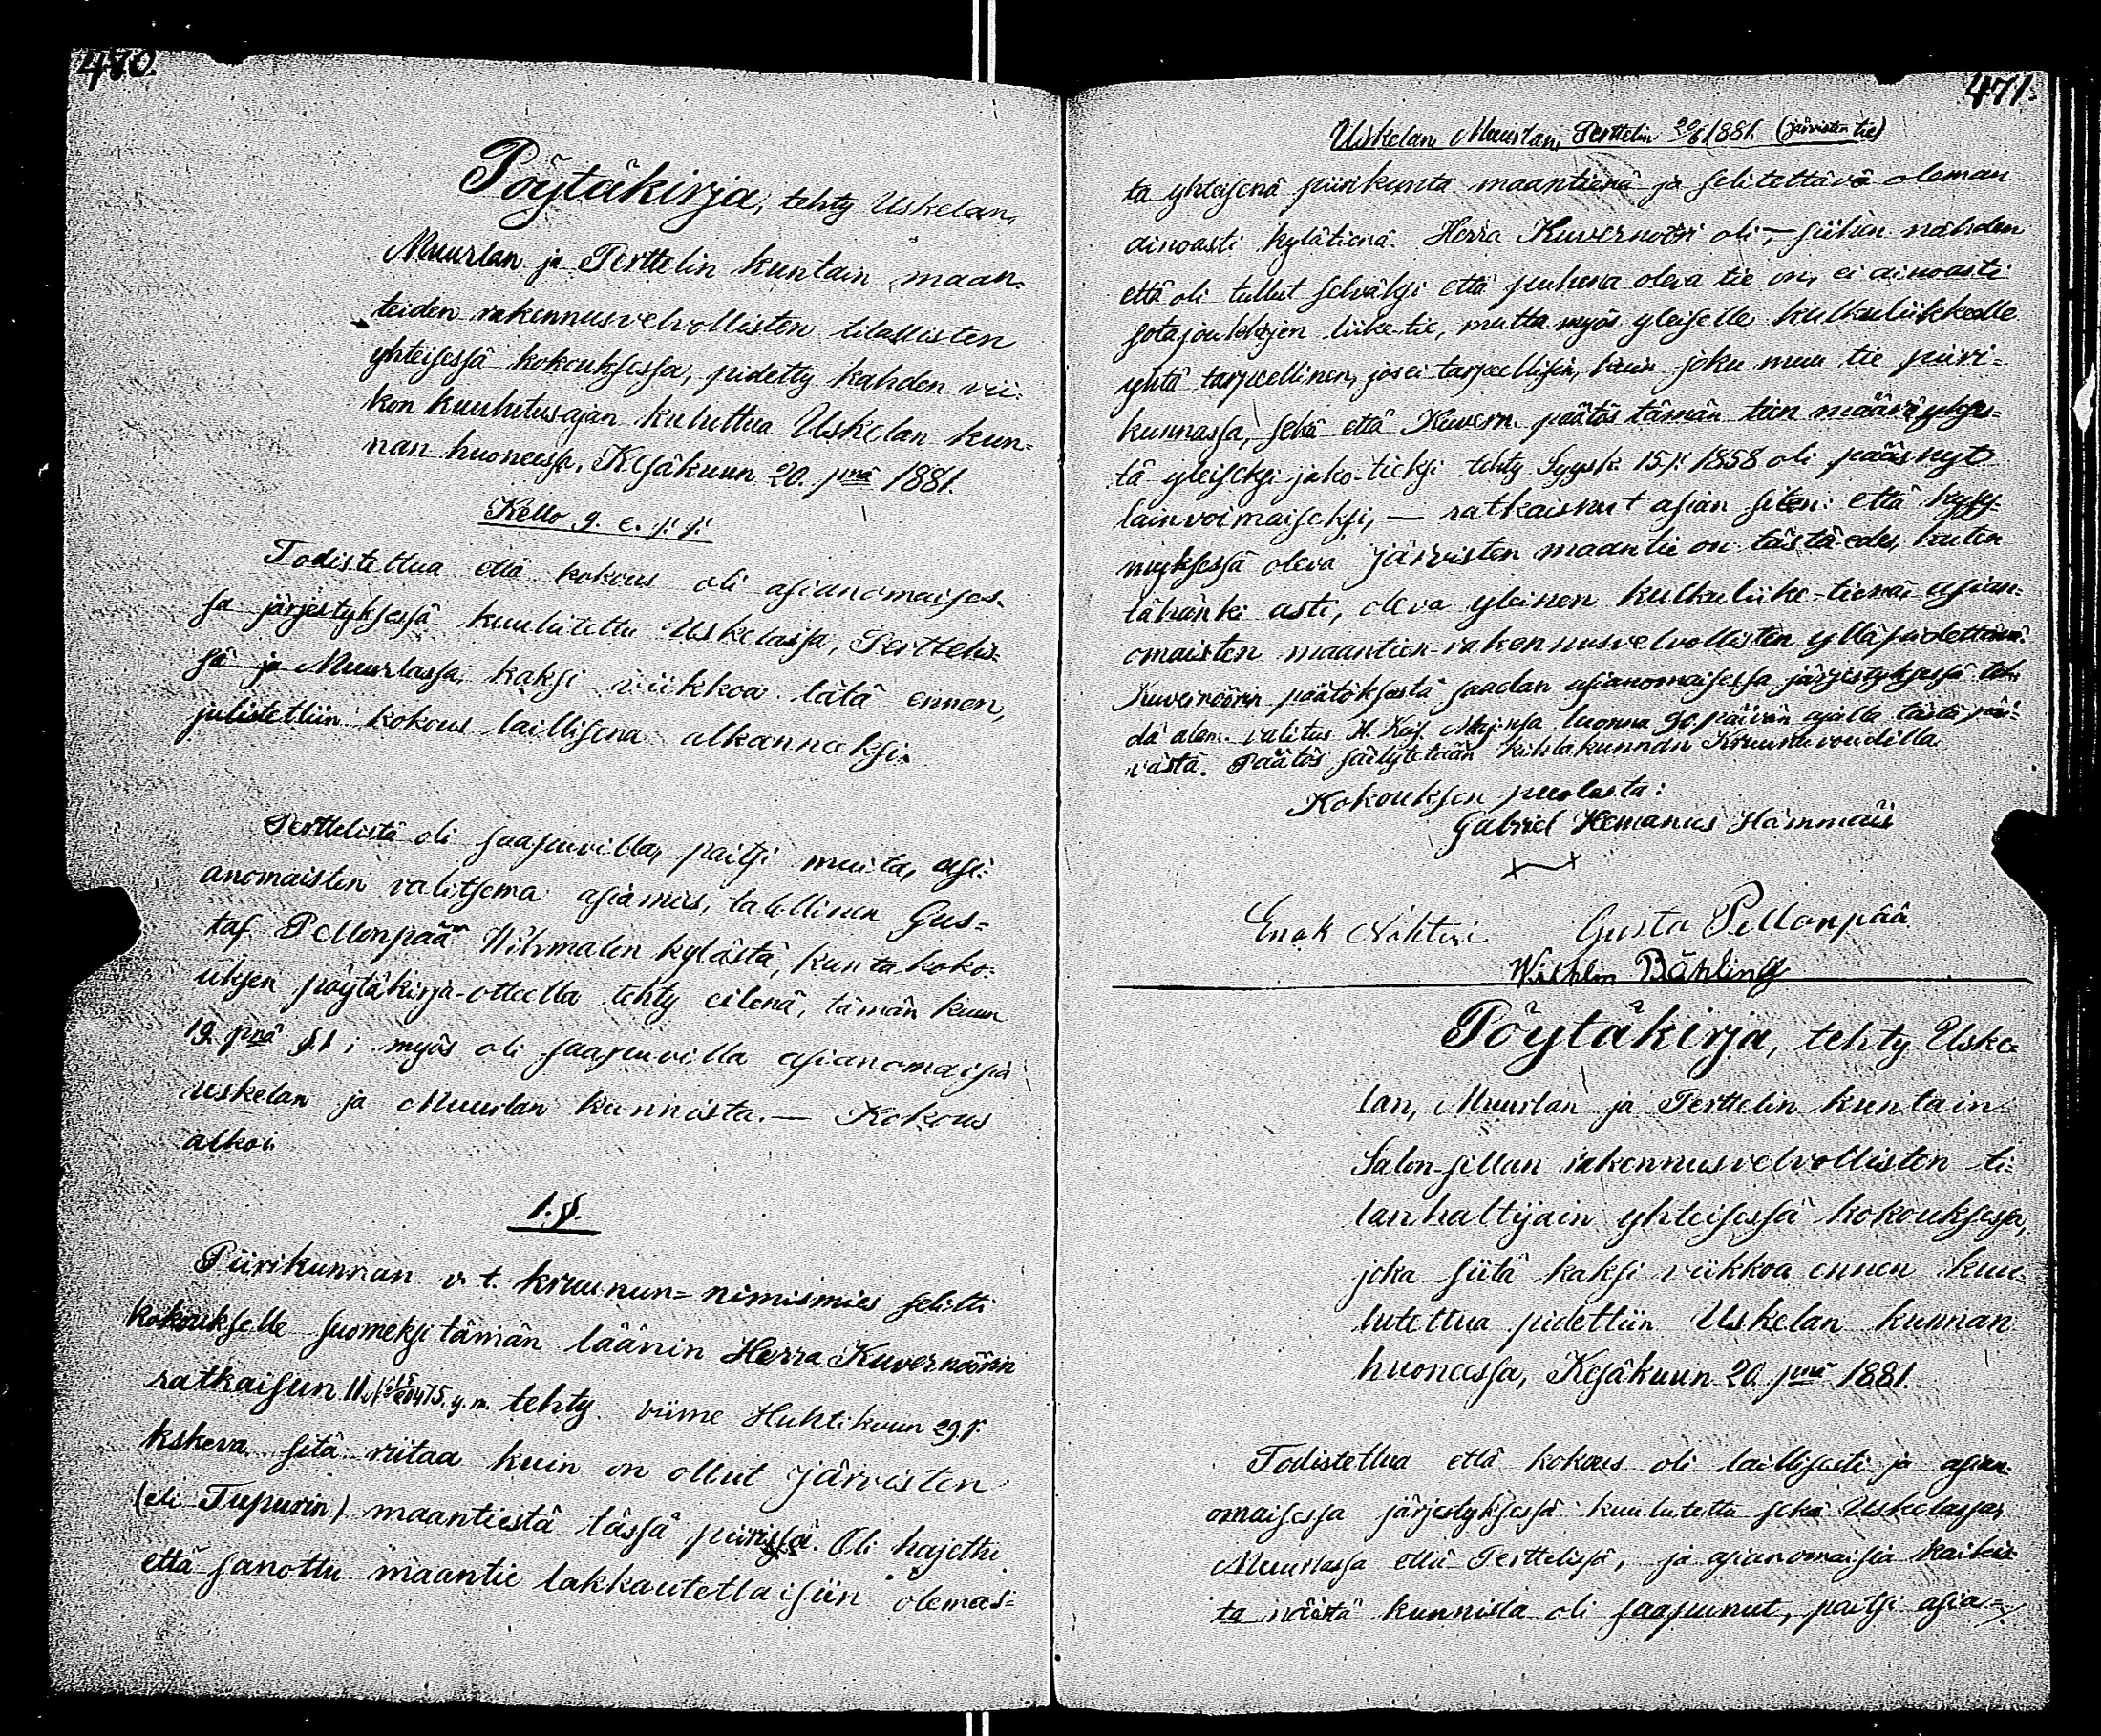 470.
Pöytäkirja, tehty Uskelan,
Muurlan ja Perttelin kuntain maan-
teiden rakennusvelvollisten tilallisten
yhteisessä kokouksessa, pidetty kahden vii-
kon kuulutusajan kuluttua Uskelan kun-
nan huoneessa, Kesäkuun 20. pnä 1881.
Kello 9. e. p. p.
Todistettua että kokous oli asianomaises-
sa järjestyksessä kuulutettu Uskelassa, Perttelis-
sä ja Muurlassa, kaksi viikkoa tätä ennen,
julistettiin kokous laillisena alkanneksi.
Perttelistä oli saapuvilla, paitsi muita, asi-
anomaisten valitsema asiamies, talollinen Gus-
taf Pellonpää Wihmalon kylästä, kuntakoko-
uksen pöytäkirja-otteella tehty eilenä, tämän kuun
19. pnä §.1; myös oli saapuvilla asianomaisia
uskelan ja Muurlan kunnista. — Kokous
alkoi.
1.§.
Piirikunnan v. t. kruunun-nimismies selitti
kokoukselle suomeksi tämän läänin Herra Kuvernöörin
ratkaisun tehty viime Huhtikuun 29. p.
kskeva sitä riitaa kuin on ollut Järvisten
(eli Tupurin) maantiestä tässä piirissä. Oli hajettu
että sanottu maantie lakkautettaisiin olemas-
471.
Uskelan, Muurlan, Perttelin 20/6 1881. (järvisten tie)
ta yhteisenä piirikunta maantienä ja selitettävä oleman
ainoasti kylätienä. Herra Kuvernööri oli, — siihen nähden
että oli tullut selväksi että puheena oleva tie on, ei ainoasti
sotajoukkojen liike-tie, mutta myös yleiselle kulkuliikkeelle
yhtä tarpeellinen, jos ei tarpeellisin, kuin joku muu tie piiri-
kunnassa, sekä että Kuvern. päätös tämän tien määräykses-
tä yleiseksi jako-tieksi tehty Syysk. 15. p. 1858 oli päässyt
lainvoimaiseksi, — ratkaisnut asian siten: että kysy-
myksessä oleva Järvisten maantie on tästä-edes, kuten
tähänki asti, oleva yleinen kulkuliike-tienä asian-
omaisten maantien-rakennusvelvollisten ylläpidettävä.
Kuvernöörin päätöksestä saadan asianomaisessa järjestyksessä teh-
dä alam. valitus H. Keis. Maj:nsa luonna 90. päivän ajalla tästä päi-
västä. Päätös säilytetään kihlakunnan Kruununvoudilla.
Kokouksen puolesta:
Gabriel Hemanus Hämmäis
Enok Nohteri Gusta Pellonpää
Wilhlm Böhling
Pöytäkirja, tehty Uske-
lan, Muurlan ja Perttelin kuntain
Salon-sillan rakennusvelvollisten ti-
lanhaltijain yhteisessä kokouksessa,
joka siitä kaksi viikkoa ennen kuu-
lutettua pidettiin Uskelan kunnan
huoneessa, Kesäkuun 20. pnä 1881.
Todistettua että kokous oli laillisesti ja asian-
omaisessa järjestyksessä kuulutettu sekä Uskelassa,
Muurlassa että Perttelissä, ja asianomaisia kaikis-
ta näistä kunnista oli saapunut, paitsi asia-